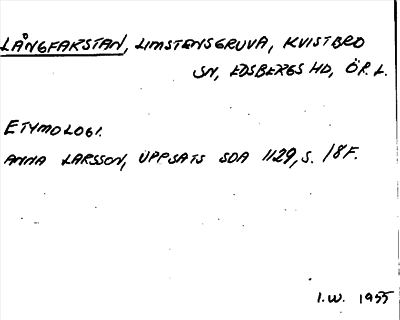 LÅNGFARSTAN, LIMSTENSGRUVA, KVISTBRO
SN, EDSBERGS HD, ÖR. L.
ETYMOLOGI.
ANNA LARSSON, UPPSATS SOA 1129, S. 18 F.
I.W. 1955